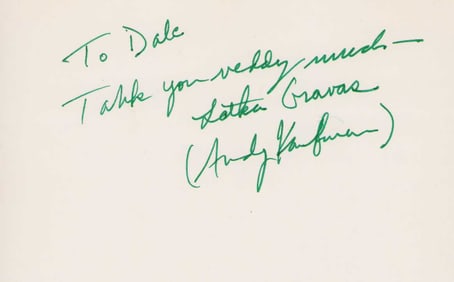 To Dale
Tahk you veddy much—
Latka Gravas
(Andy Kaufman)